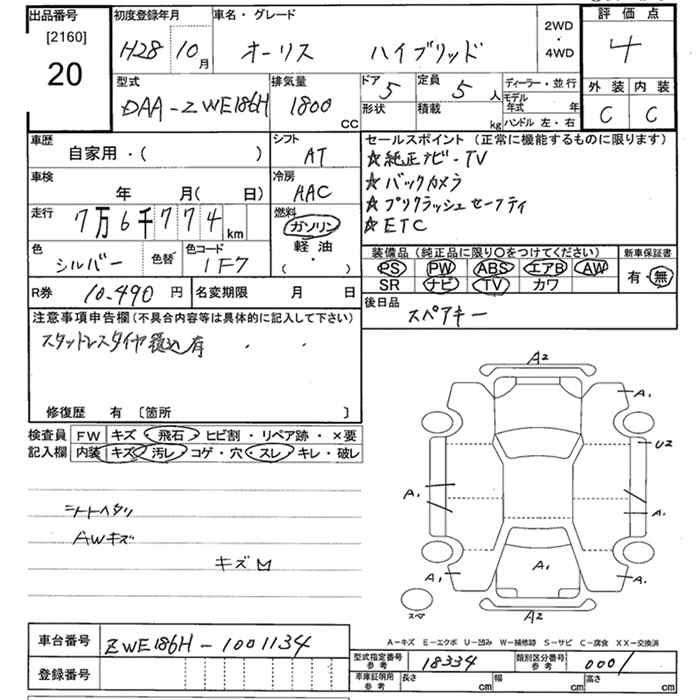 出品番号
[2160]
20
初度登録年月
H28 10月
車名・グレード
オーリス ハイブリッド
2WD
・
4WD
評価点
4
外装 内装
C C
型式
DAA-ZWE186H
排気量
1800
CC
ドア
5
定員
5人
形状
積載
kg
ディーラー・並行
モデル年式 年
ハンドル 左・右
車歴
自家用・( )
シフト
AT
車検
年 月( 日)
冷房
AAC
走行
7万6千774km
燃料
ガソリン
軽油
( ・ )
色
シルバー
色替
色コード
1F7
セールスポイント(正常に機能するものに限ります)
☆純正ナビ-TV
☆バックカメラ
☆プリクラッシュセーフティ
☆ETC
装備品(純正品に限り〇をつけてください)
PS PW ABS エアB AW
SR ナビ TV カワ
新車保証書
有・無
R券
10.490円
名変期限 月 日
後日品
スペアキー
注意事項申告欄(不具合内容等は具体的に記入して下さい)
スタッドレスタイヤ積込有
修復歴 有 〔箇所 〕
検査員
記入欄
FW キズ・飛石・ヒビ割・リペア跡・×要
内装 キズ・汚レ・コゲ・穴・スレ・キレ・破レ
シートヘタリ
AWキズ
キズ
A2
A1
U2
A1
A1
A1
A1
A1
A2
スペア
A-キズ E-エクボ U-凹み W-補修跡 S-サビ C-腐食 XX-交換済
車台番号
ZWE186H-1001134
登録番号
型式指定番号
参考
18334
類別区分番号
参考
0001
車庫証明用
参考
長さ cm
幅 cm
高さ cm